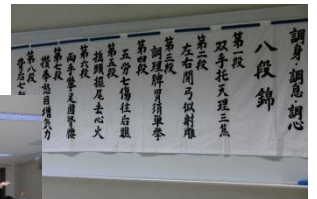 調身・調息・調心
八段錦
第一段
双手托天理三焦
第二段
左右開弓似射雕
第三段
調理脾胃須単挙
第四段
五労七傷往后瞧
第五段
揺頭擺尾去心火
第六段
両手攀足固腎腰
第七段
攅拳怒目増気力
第八段
背后七